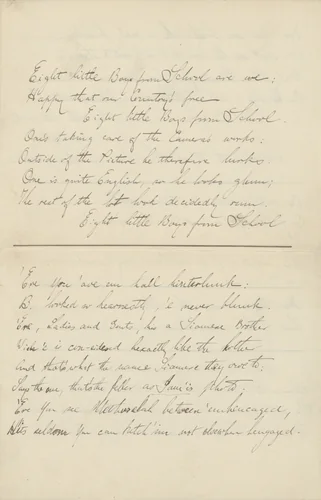 Eight little Boys from School are we:
Happy that our Country's free
Eight little Boys from School.
One's taking care of the Camera's works:
Outside of the Picture he therefore lurks.
One is quite English, so he looks glum;
The rest of the lot look decidedly rum.
Eight little Boys from School
'Ere you 'ave um hall
'E looked so hearnestly, 'e never blunk.
'Ere, Ladies and Gents, is a Siamese Brother
Which is considered hexactly like the hother
And that's what the names Siamese they
Says the one, that's the other as
'Ere you see Methuselah between
Hits seldom you can catch 'im not elsewhere hengaged.